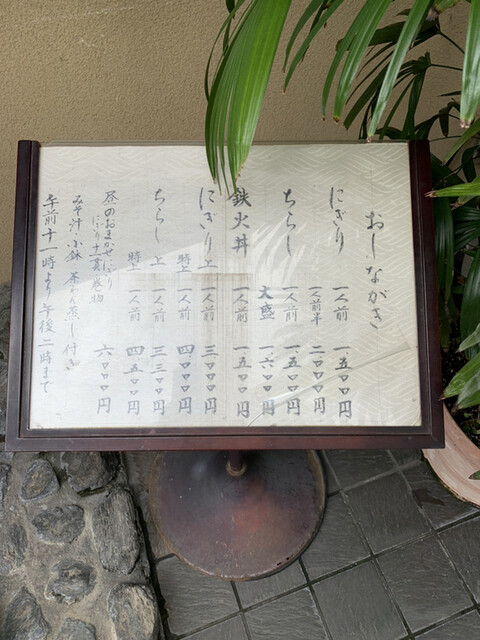 おしながき
にぎり 一人前 一五〇〇円
一人前半 二〇〇〇円
ちらし 一人前 一五〇〇円
大盛 一六〇〇円
鉄火丼 一人前 一五〇〇円
にぎり 上 一人前 三〇〇〇円
特上 一人前 四〇〇〇円
ちらし 上 一人前 三三〇〇円
特上 一人前 四五〇〇円
昼のおまかせにぎり 六〇〇〇円
にぎり十一貫、巻物
みそ汁・小鉢 茶わん蒸し付
午前十一時より午後二時まで